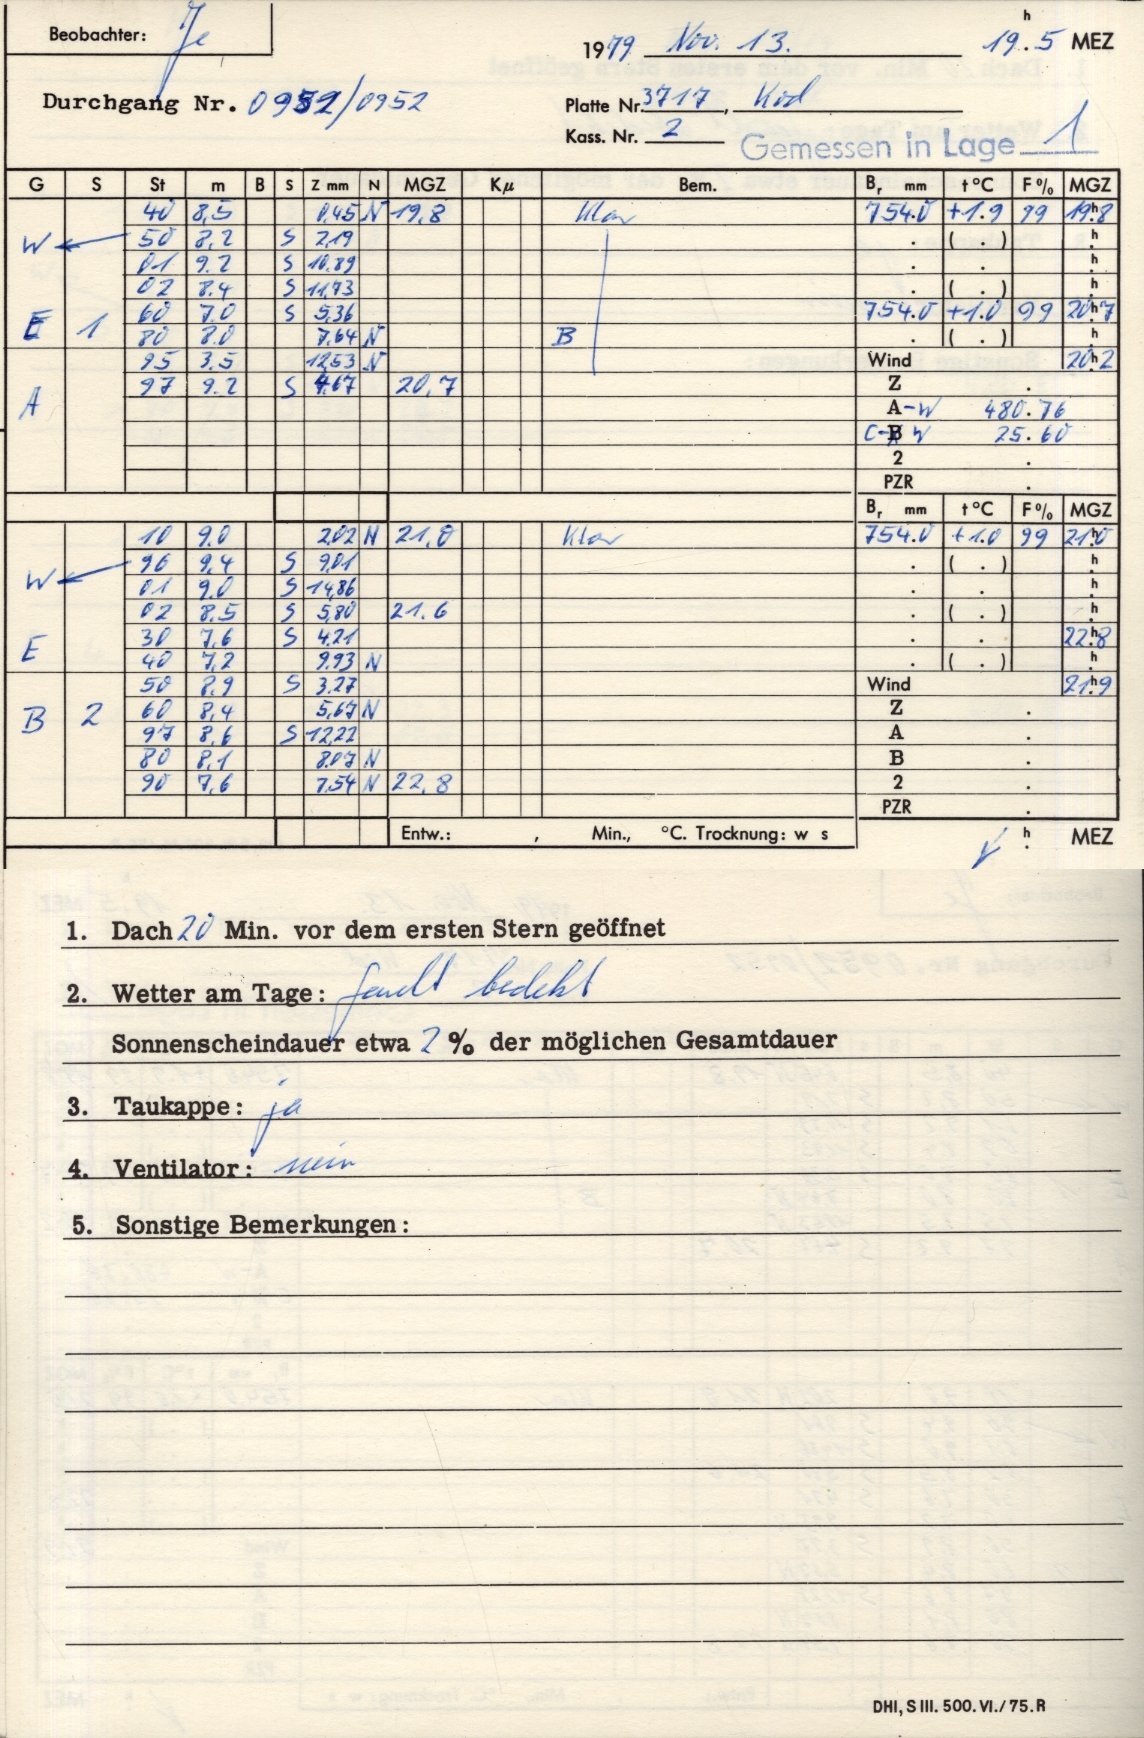 Beobachter: Je
1979 Nov. 13. 19h.5 MEZ
Durchgang Nr. 0952/0952
Platte Nr. 3717, Kod
Kass. Nr. 2
Gemessen in Lage 1
G S St m B S Z mm N MGZ Kµ Bem. Br mm t°C F% MGZ
40 8,5 0,45 N 19,8 klar 754.0 +1.9 99 19h8
W 50 8,2 S 2,19 . ( . ) h
01 9.2 S 10.89 . . h
02 8.4 S 11,73 . ( . ) h
60 7.0 S 5,36 754.0 +1.0 99 20h7
E 1 80 8.0 7,64 N B . ( . ) h
95 3.5 12,53 N Wind 20h2
A 97 9.2 S 4,67 20,7 Z .
A-W 480.76
W 25.60
2 .
PZR .
Br mm t°C F% MGZ
10 9.0 2,02 N 21,0 klar 754.0 +1.0 99 21h0
W 96 9,4 S 9,01 . ( . ) h
01 9.0 S 14,86 . . h
02 8.5 S 5,80 21.6 . ( . ) h
E 30 7,6 S 4,21 . . 22h8
40 7,2 9,93 N . ( . ) h
50 8,9 S 3,27 Wind 21h9
B 2 60 8,4 5,67 N Z .
97 8,6 S 12,22 A .
80 8,1 8.07 N B .
90 7,6 7,54 N 22,8 2 .
PZR .
Entw.: , Min., °C. Trocknung: w s h. MEZ
1. Dach 20 Min. vor dem ersten Stern geöffnet
2. Wetter am Tage: bedekt
Sonnenscheindauer etwa 2 % der möglichen Gesamtdauer
3. Taukappe: ja
4. Ventilator: nein
5. Sonstige Bemerkungen:
DHI, S III. 500. VI./75. R